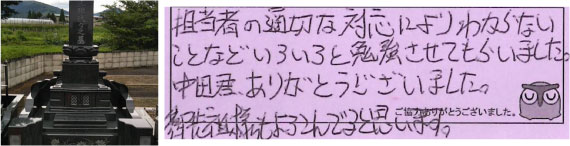 担当者の適切な対応によりわからない
ことなどいろいろと勉強させてもらいました。
中田君、ありがとうございました。
ご協力ありがとうございました。
御先祖様もよろこんでると思います。